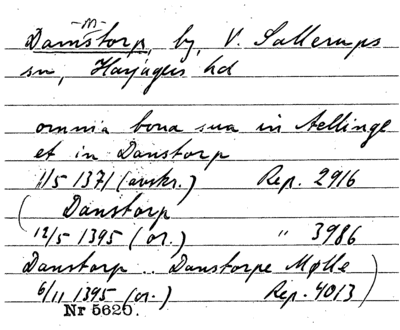 -m-
Damstorp, by, V. Sallerups
sn, Harjagers hd
omnia bona sua in Aellinge
et in Danstorp
11/5 1371 (avskr.) Rep. 2916
( Danstorp
12/5 1395 (or.) " 3986
Danstorp .. Danstorpe Mølle )
6/11 1395 (or.) Rep. 4013
Nr 5620.